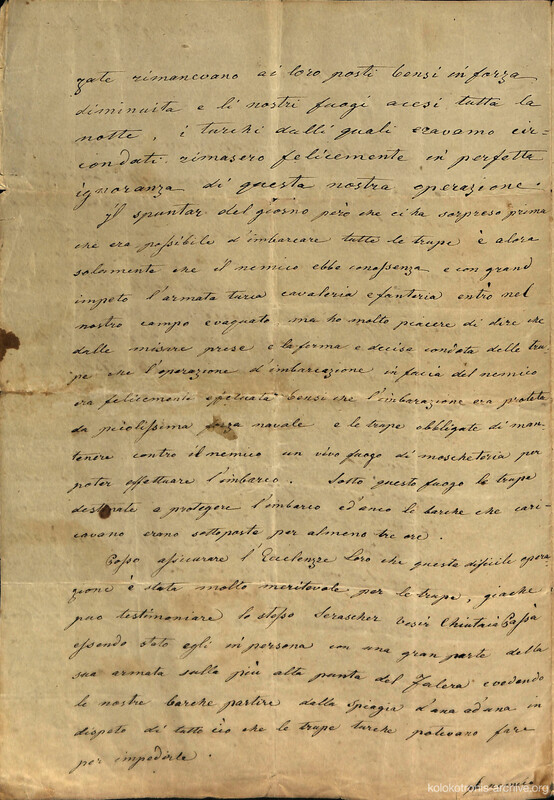 zate rimanevano ai loro posti bensi in forza
diminuita e li nostri fuogi acesi tutta la
notte, i turchi dalli quali eravamo cir-
condati rimasero felicemente in perfetta
ignoranza di questa nostra operazione.
Il spuntar del giorno però che ci ha sorpreso prima
che era possibile d'imbarcare tutte le trupe è alora
solamente che il nemico ebbe conossenza e con grand
impeto l'armata turca cavaleria e fanteria entrò nel
nostro campo evaquato ma ho molto piacere di dire che
dalle misure prese e la ferma e decisa condota delle tru-
pe che l'operazione d'imbarcazione in facia del nemico
era felicemente efetuata bensi che l'imbarazione era proteta
da picolissima forza navale e le trupe obbligate di man-
tenere contro il nemico un vivo fuogo di moscheteria per
poter effettuare l'imbarco. Sotto questo fuogo le trupe
destinate a protegere l'imbarco ed'anco le barche che cari-
cavano erano sottoposte per almeno tre ore.
Posso assicurare l'Eccelenze Loro che questa dificile opera-
zione è stata molto meritevole per le trupe, giache
puo testimoniare lo stesso Serascher Vesir Chiutai Passà
essendo stato egli in persona con una gran parte della
sua armata sulla più alta punta del Falera e vedendo
le nostre barche partire dalla spiagia d'una ad'una in
dispeto di tutto ciò che le trupe turche potevano fare
per impedirle.
Il nemico
kolokotronis-archive.org